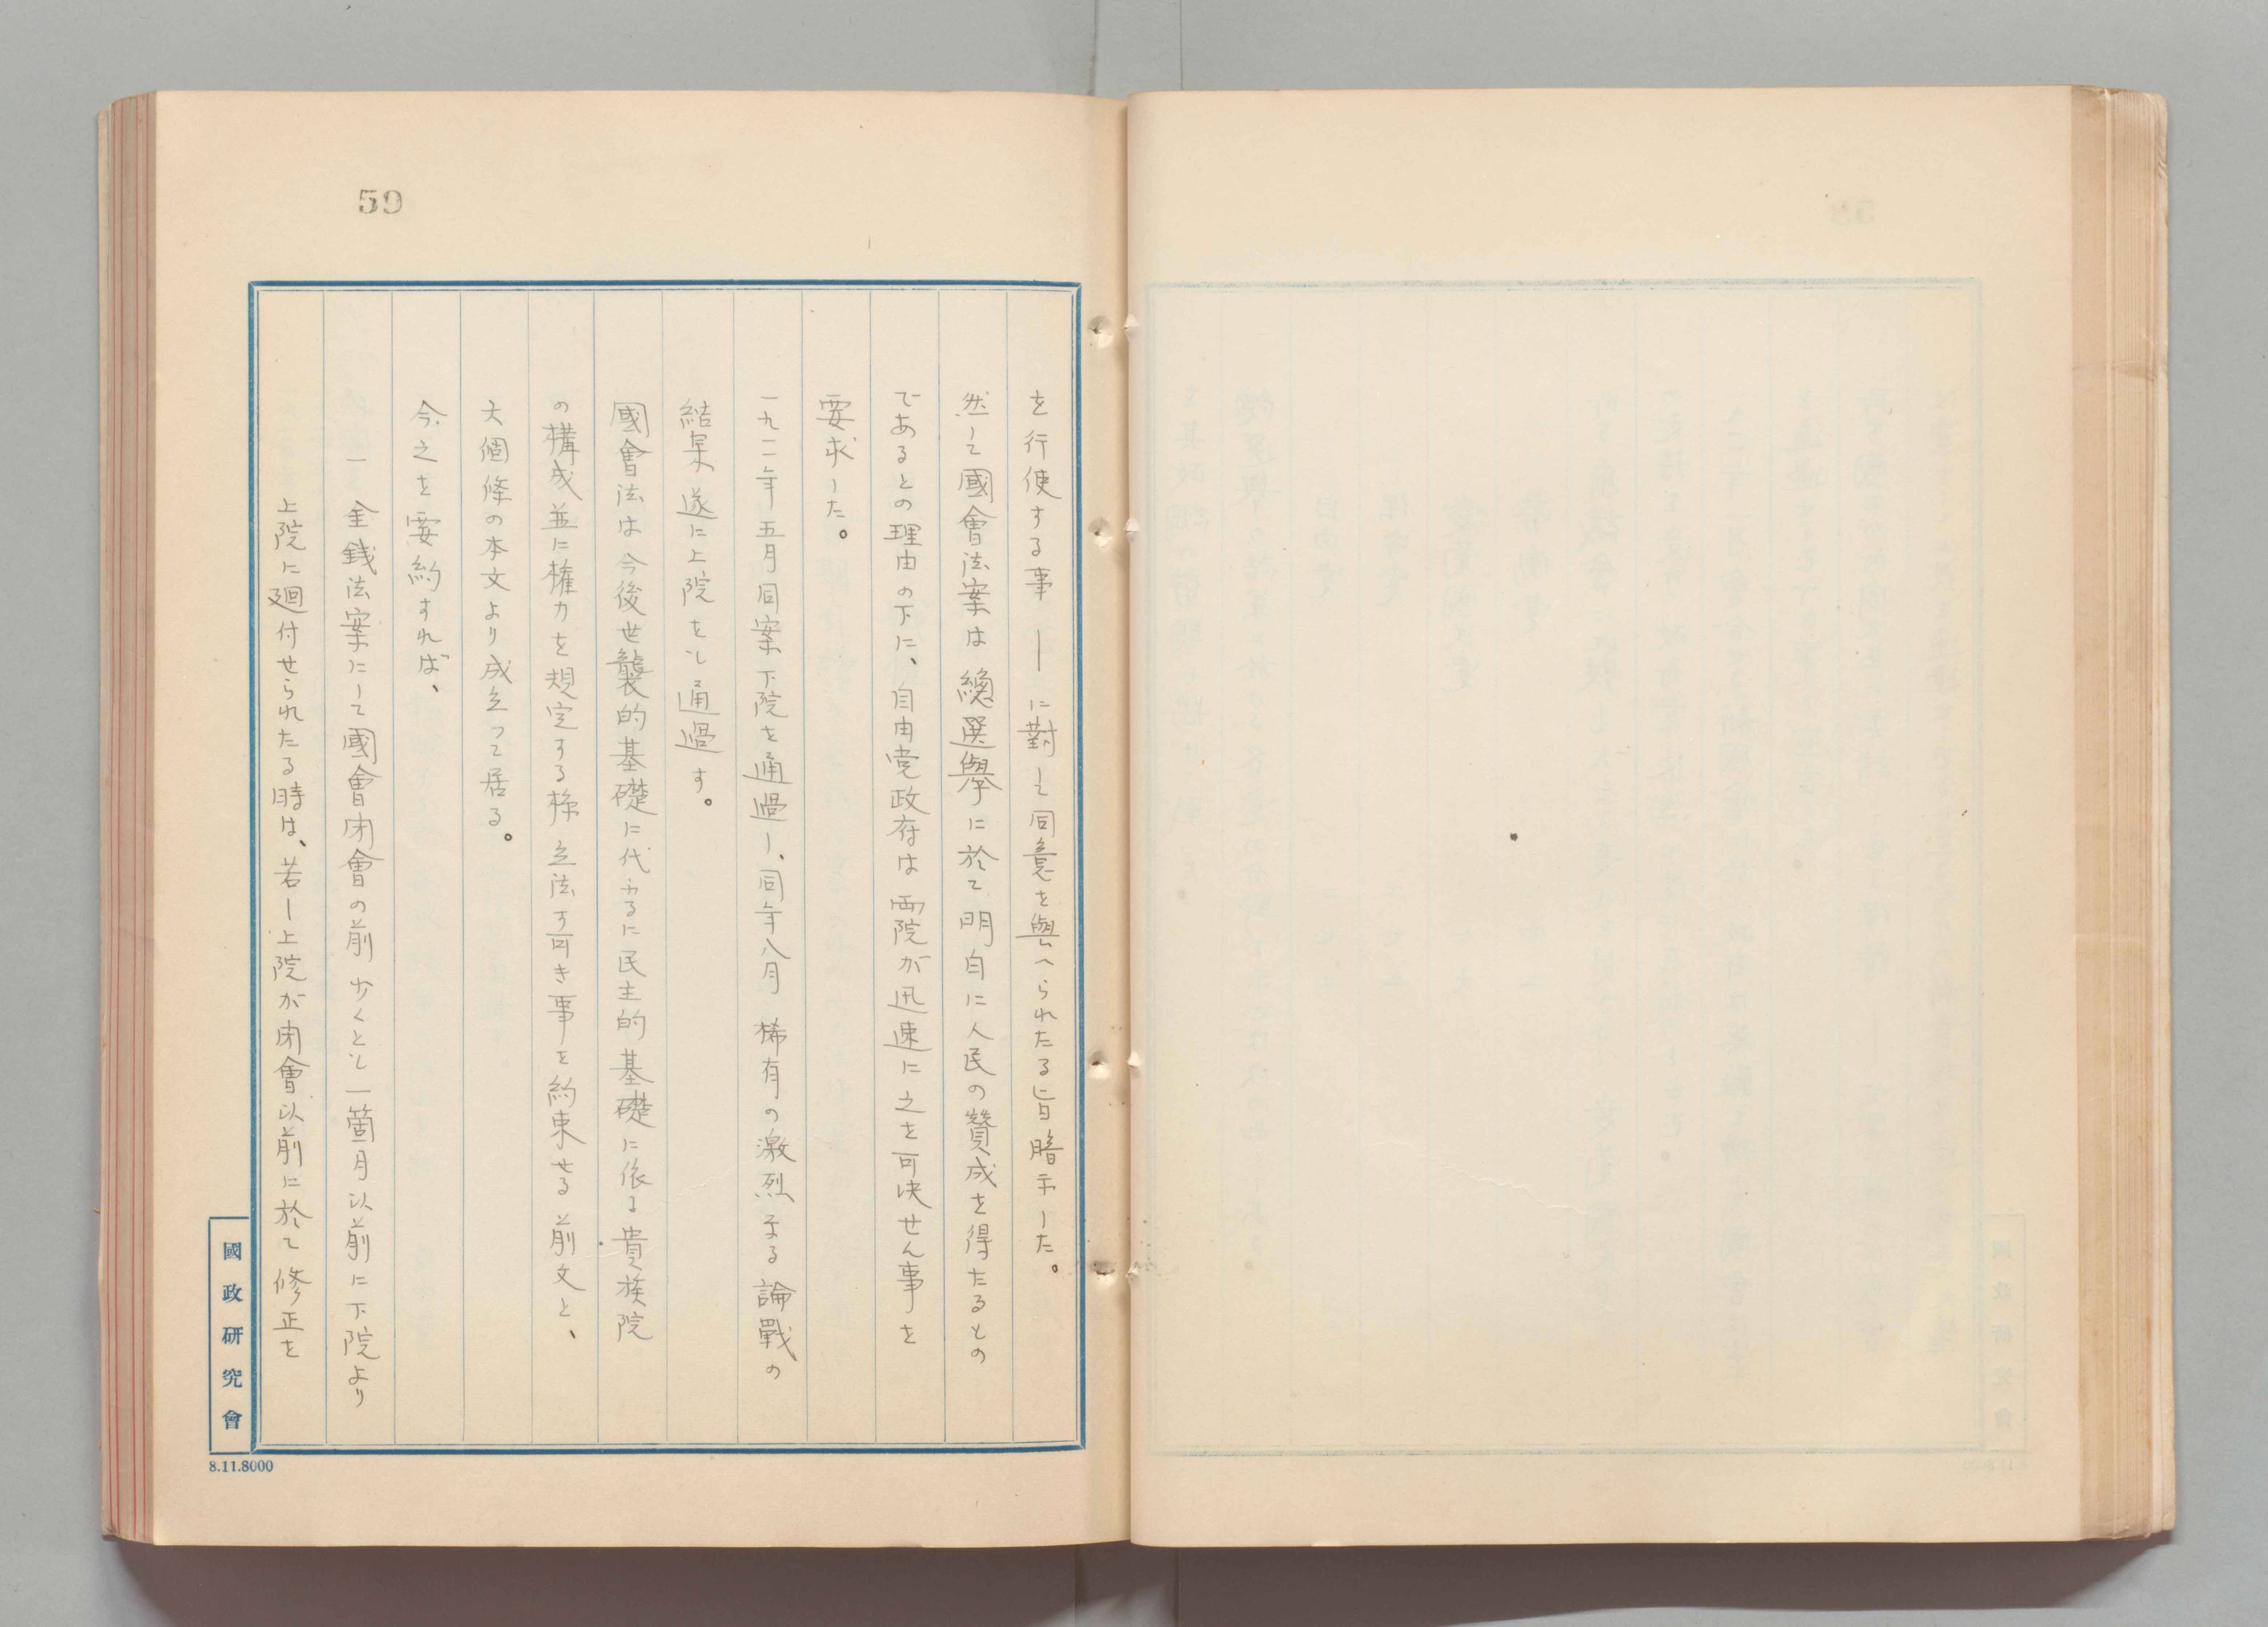 59
を行使する事 ― に對して同意を與へられたる旨暗示した。
然して國會法案は總選擧に於て明白に人民の贊成を得たるとの
であるとの理由の下に、自由党政府は両院が迅速に之を可決せん事を
要求した。
一九一一年五月同案下院を通過し、同年八月 稀有の激烈なる論戰の
結果 遂に上院をも通過す。
國會法は今後世襲的基礎に代ふるに民主的基礎に依る貴族院
の構成並に權力を規定する様立法す可き事を約束せる前文と、
大個條の本文より成立つて居る。
今之を要約すれば、
一 金錢法案にして國會閉會の前 少くとも一箇月以前に下院より
上院に廻付せられたる時は、若し上院が閉會以前に於て修正を
國政研究會
8.11.8000